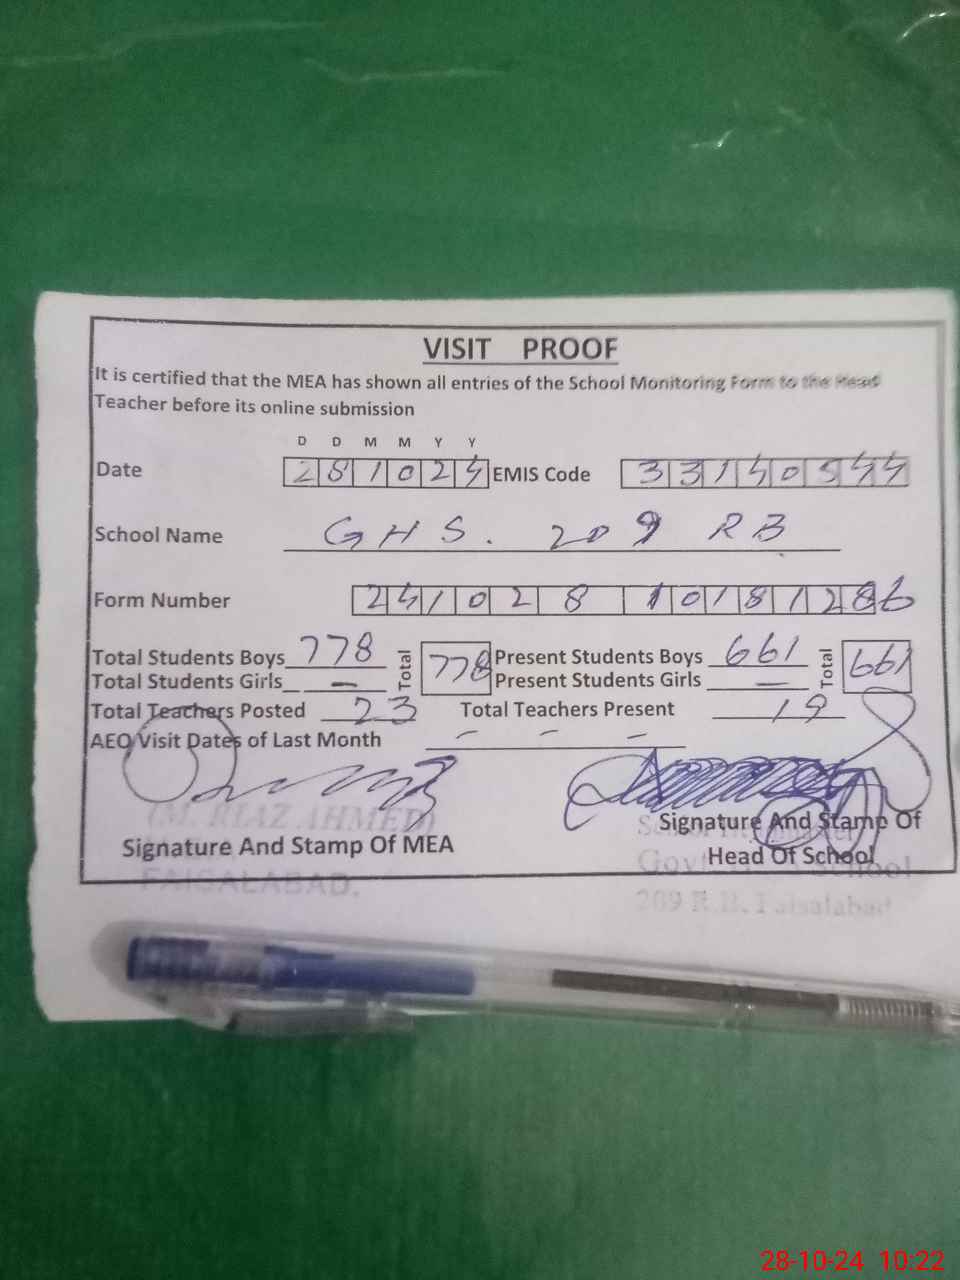 VISIT PROOF
It is certified that the MEA has shown all entries of the School Monitoring Form to the Head
Teacher before its online submission
D D M M Y Y
Date 281024 EMIS Code 33140544
School Name GHS. 209 RB
Form Number 241028 1018128
Total Students Boys 778 Total 778 Present Students Boys 661 Total 661
Total Students Girls — Present Students Girls —
Total Teachers Posted 23 Total Teachers Present 19
AEO Visit Dates of Last Month — — —
(M. RIAZ AHMED)
Signature And Stamp Of MEA Signature And Stamp Of
Head Of School
FAISALABAD. Govt. School
209 R.B. Faisalabad
28-10-24 10:22